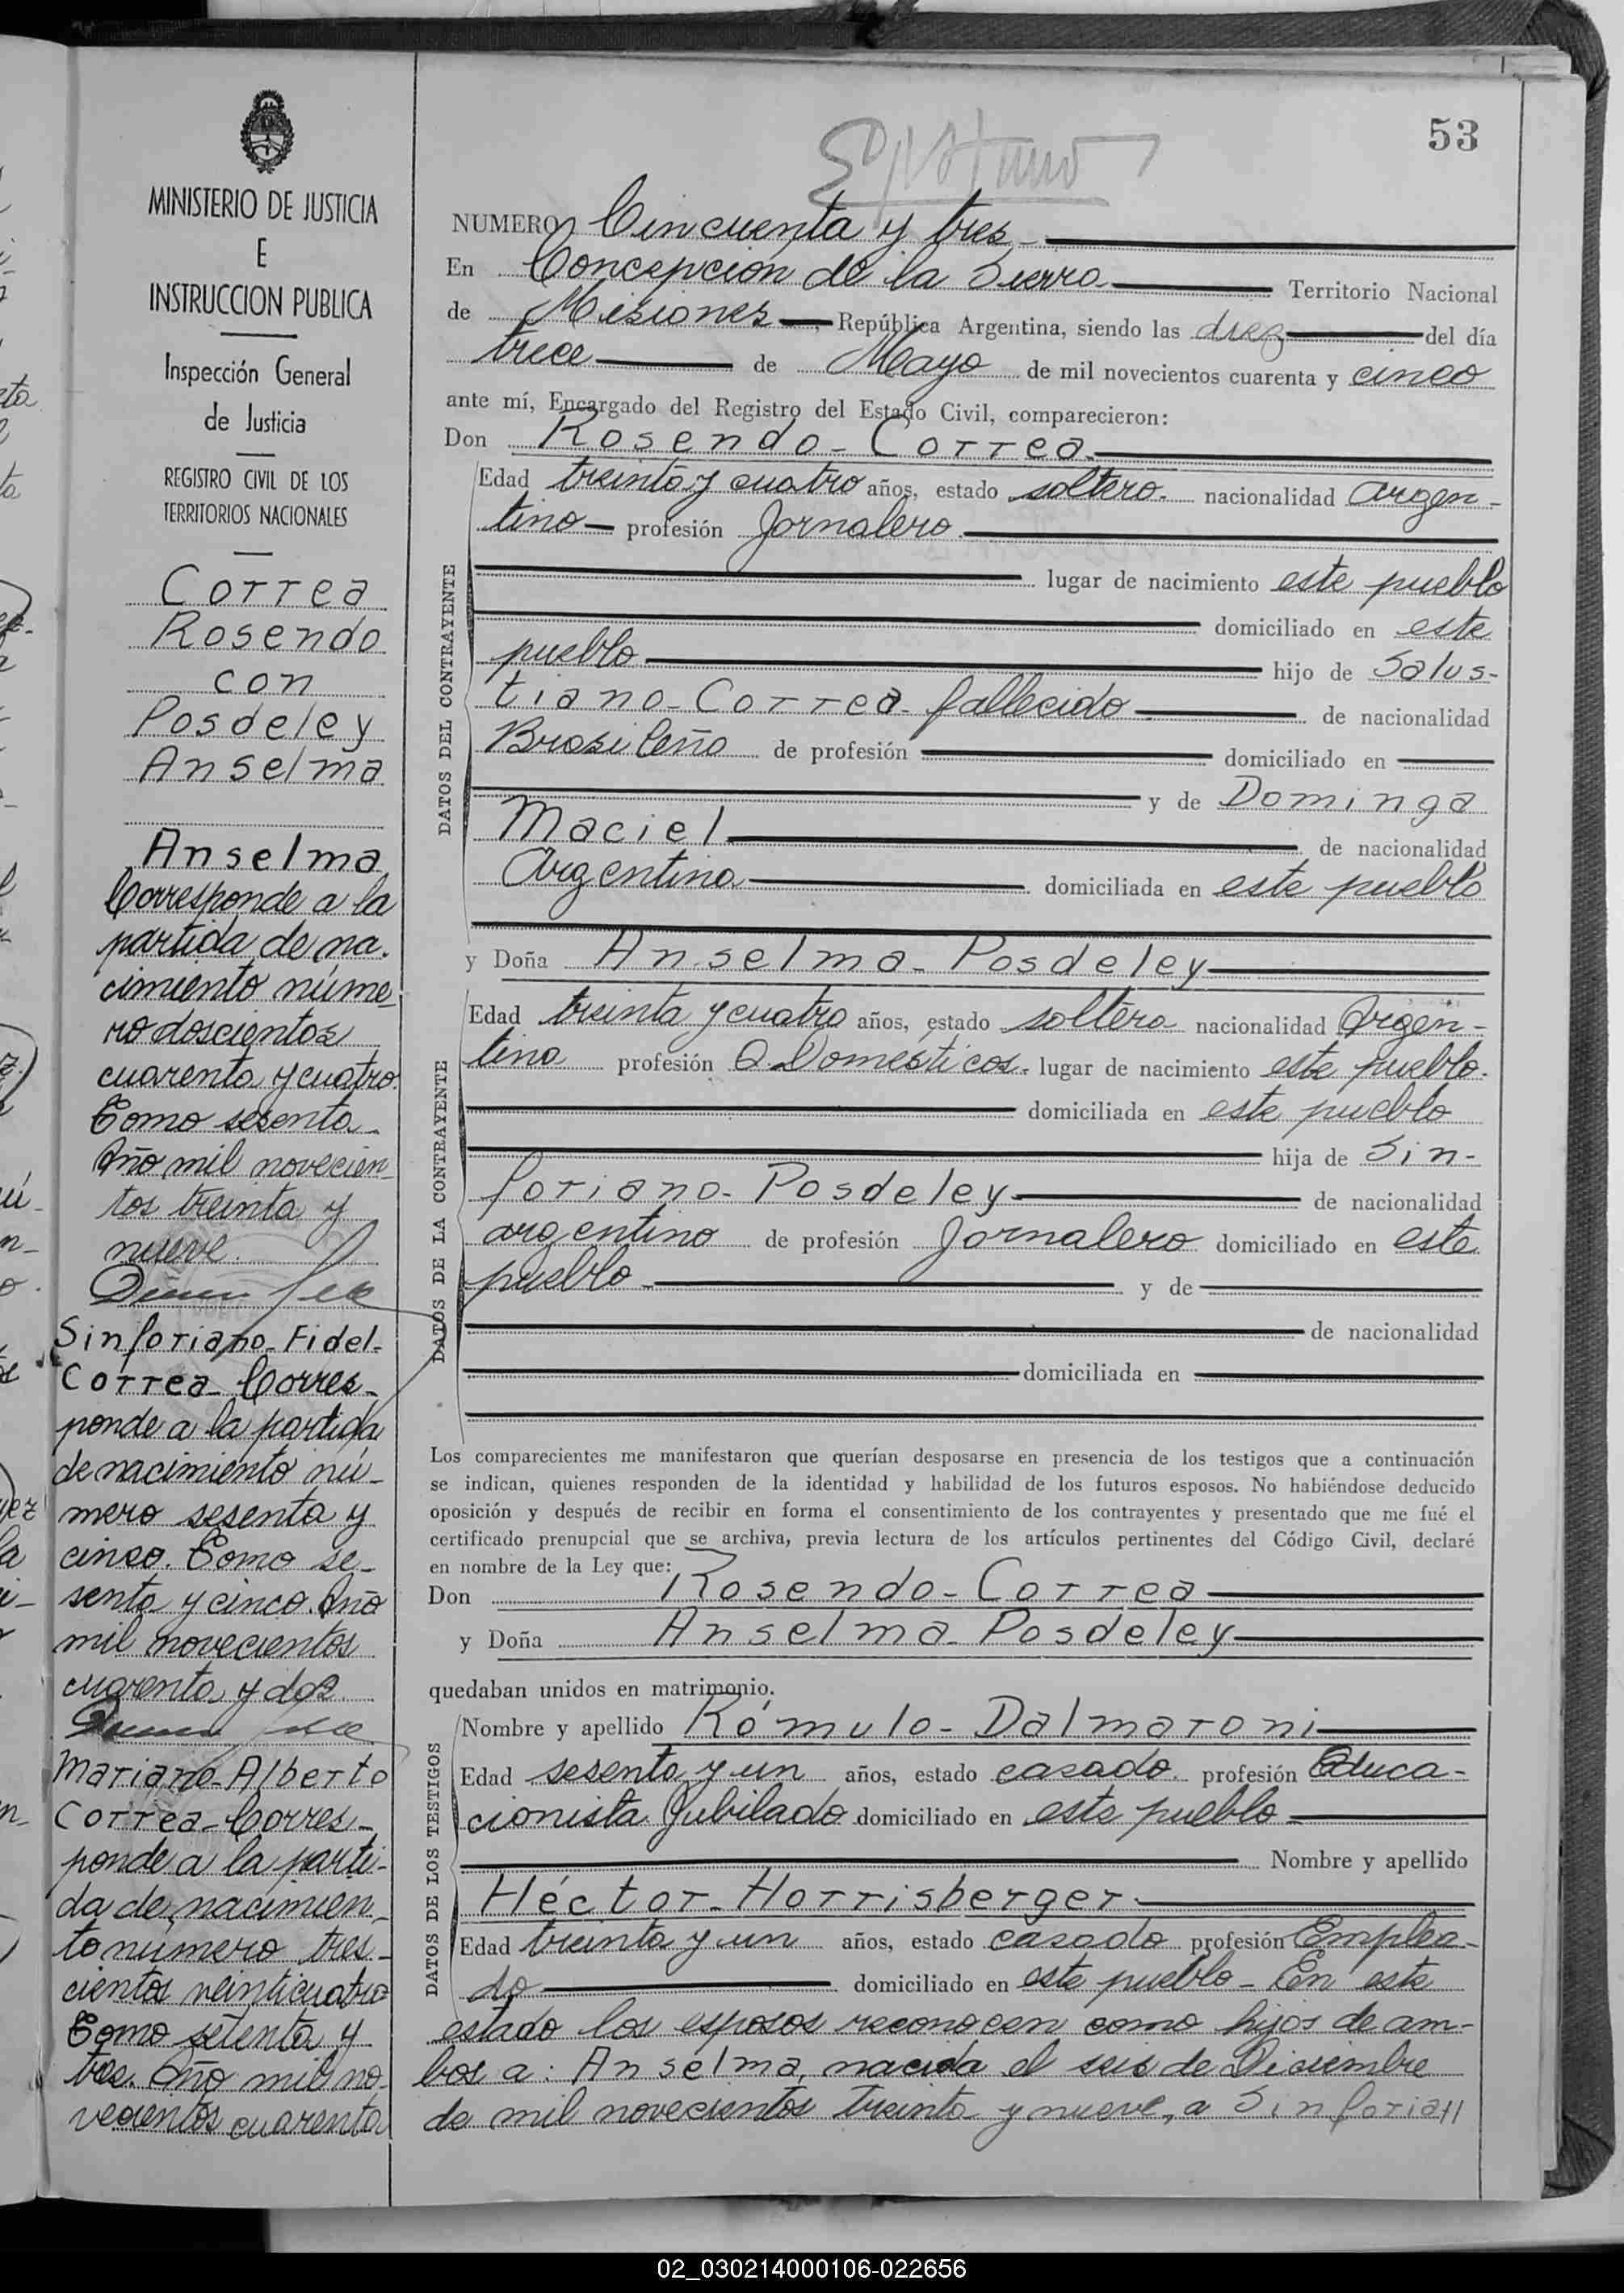 53
MINISTERIO DE JUSTICIA
E
INSTRUCCION PUBLICA
Inspección General
de Justicia
REGISTRO CIVIL DE LOS
TERRITORIOS NACIONALES
Correa
Rosendo
con
Posdeley
Anselma
Anselma
Corresponde a la
partida de na-
cimiento núme-
ro doscientos
cuarenta y cuatro.
Tomo sesenta
Año mil novecien-
tos treinta y
nueve.
Sinforiano-Fidel-
Correa-Corres-
ponde a la partida
de nacimiento nú-
mero sesenta y
cinco. Tomo se-
senta y cinco. Año
mil novecientos
cuarenta y dos.
Mariano-Alberto
Correa-Corres-
ponde a la parti-
da de nacimien-
to número tres-
cientos veinticuatro
Tomo setenta y
tres. Año mil no-
vecientos cuarenta
NUMERO Cincuenta y tres
En Concepción de la Sierra Territorio Nacional
de Misiones, República Argentina, siendo las diez del día
trece de Mayo de mil novecientos cuarenta y cinco
ante mí, Encargado del Registro del Estado Civil, comparecieron:
Don Rosendo-Correa
DATOS DEL CONTRAYENTE
Edad treinta y cuatro años, estado soltero nacionalidad argen-
tino profesión Jornalero
lugar de nacimiento este pueblo
domiciliado en este
pueblo hijo de Salus-
tiano-Correa-fallecido de nacionalidad
Brasileña de profesión domiciliado en
y de Dominga
Maciel de nacionalidad
Argentina domiciliada en este pueblo
y Doña Anselma-Posdeley
DATOS DE LA CONTRAYENTE
Edad treinta y cuatro años, estado soltera nacionalidad Argen-
tina profesión Q. Domésticos lugar de nacimiento este pueblo.
domiciliada en este pueblo
hija de Sin-
foriano-Posdeley de nacionalidad
argentino de profesión Jornalero domiciliado en este
pueblo y de
de nacionalidad
domiciliada en
Los comparecientes me manifestaron que querían desposarse en presencia de los testigos que a continuación
se indican, quienes responden de la identidad y habilidad de los futuros esposos. No habiéndose deducido
oposición y después de recibir en forma el consentimiento de los contrayentes y presentado que me fué el
certificado prenupcial que se archiva, previa lectura de los artículos pertinentes del Código Civil, declaré
en nombre de la Ley que:
Don Rosendo-Correa
y Doña Anselma-Posdeley
quedaban unidos en matrimonio.
DATOS DE LOS TESTIGOS
Nombre y apellido Rómulo-Dalmaroni
Edad sesenta y un años, estado casado profesión Educa-
cionista Jubilado domiciliado en este pueblo
Nombre y apellido
Héctor-Horrisberger
Edad treinta y un años, estado casado profesión Emplea-
do domiciliado en este pueblo-En este
estado los esposos reconocen como hijos de am-
bos a: Anselma, nacida el seis de Diciembre
de mil novecientos treinta y nueve, a Sinforian
02_030214000106-022656